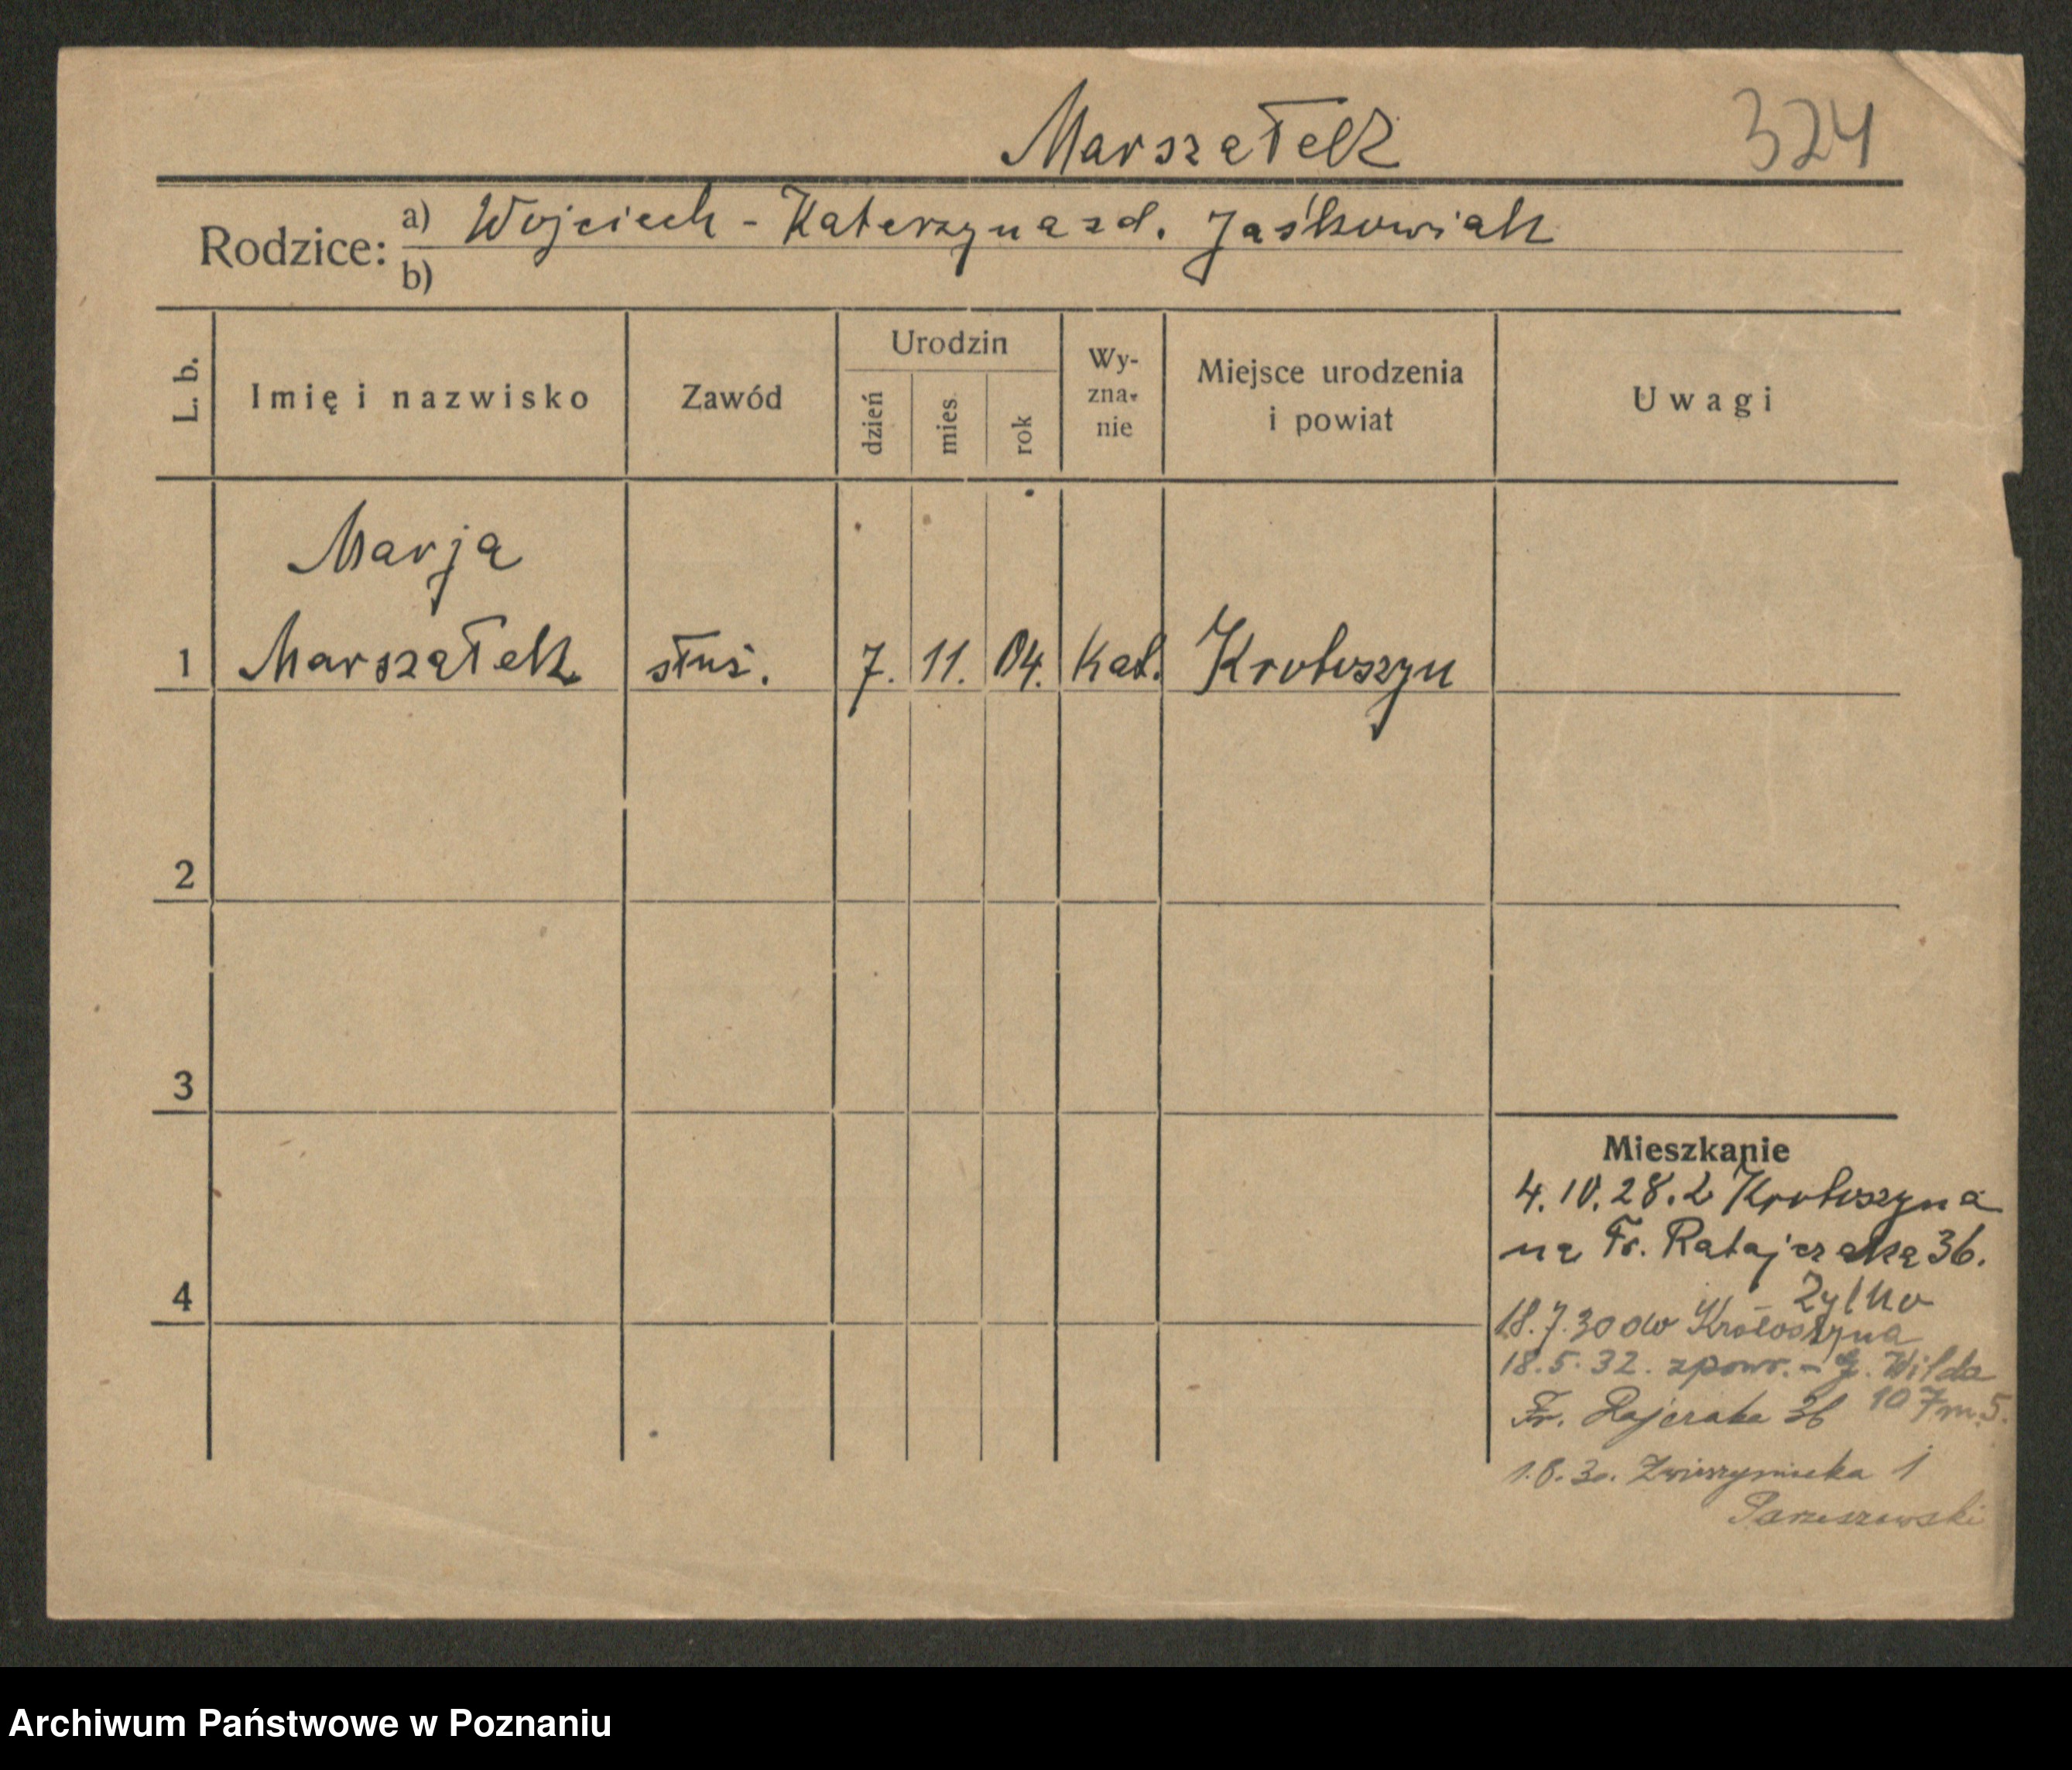 Marszałek 324
Rodzice: a) Wojciech - Katarzyna zd. Jaśkowiak
b)
L. b. Imię i nazwisko Zawód Urodzin dzień mies. rok Wyzna-nie Miejsce urodzenia i powiat Uwagi
Marja
1 Marszałek służ. 7. 11. 04. Kat. Krotoszyn
2
3
Mieszkanie
4.10.28. z Krotoszyna
na Fr. Ratajczaka 36.
4
- Zylko
18.7.30 do Krotoszyna
18.5.32. zpowr. - G. Wilda
107 m. 5.
Fr. Rajczaka 36
1.8.30. Zwierzyniecka 1
Archiwum Państwowe w Poznaniu